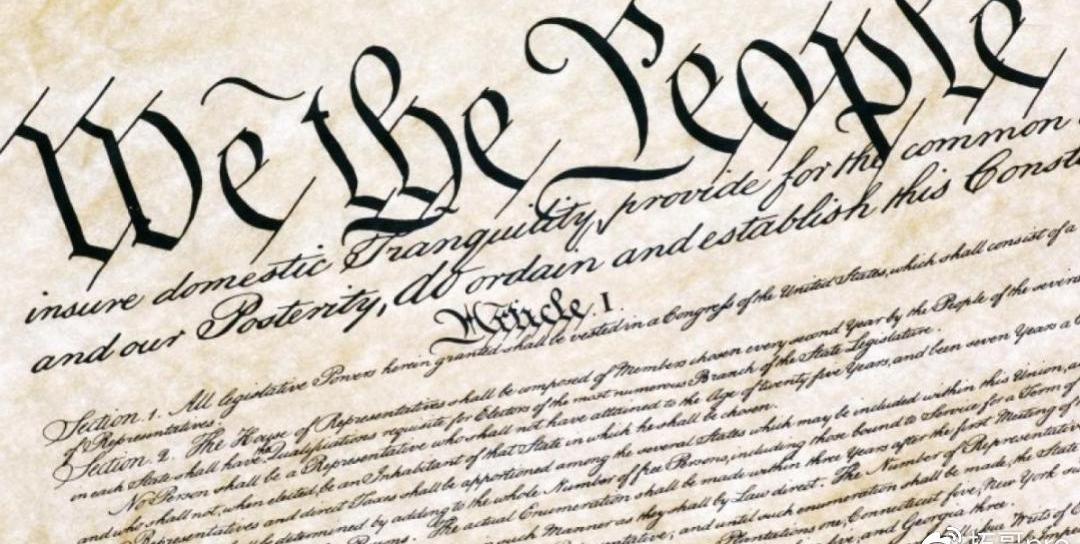 We the People
insure domestic Tranquility, provide for the common
and our Posterity, do ordain and establish this Const
Article. I.
Section. 1. All legislative Powers herein granted shall be vested in a Congress of the United States, which shall consist of a
of Representatives.
Section. 2. The House of Representatives shall be composed of Members chosen every second Year by the People of the several
in each State shall have the Qualifications requisite for Electors of the most numerous Branch of the State Legislature.
No Person shall be a Representative who shall not have attained to the Age of twenty five Years, and been seven Years a
and who shall not, when elected, be an Inhabitant of that State in which he shall be chosen.
Representatives and direct Taxes shall be apportioned among the several States which may be included within this Union,
be determined by adding to the whole Number of free Persons, including those bound to Service for a Term of
The actual Enumeration shall be made within three Years after the first Meeting of
such Manner as they shall by Law direct. The Number of Representatives
and until such enumeration shall be made, the State
Plantations one, Connecticut five, New York
five, and Georgia three.
Writs of